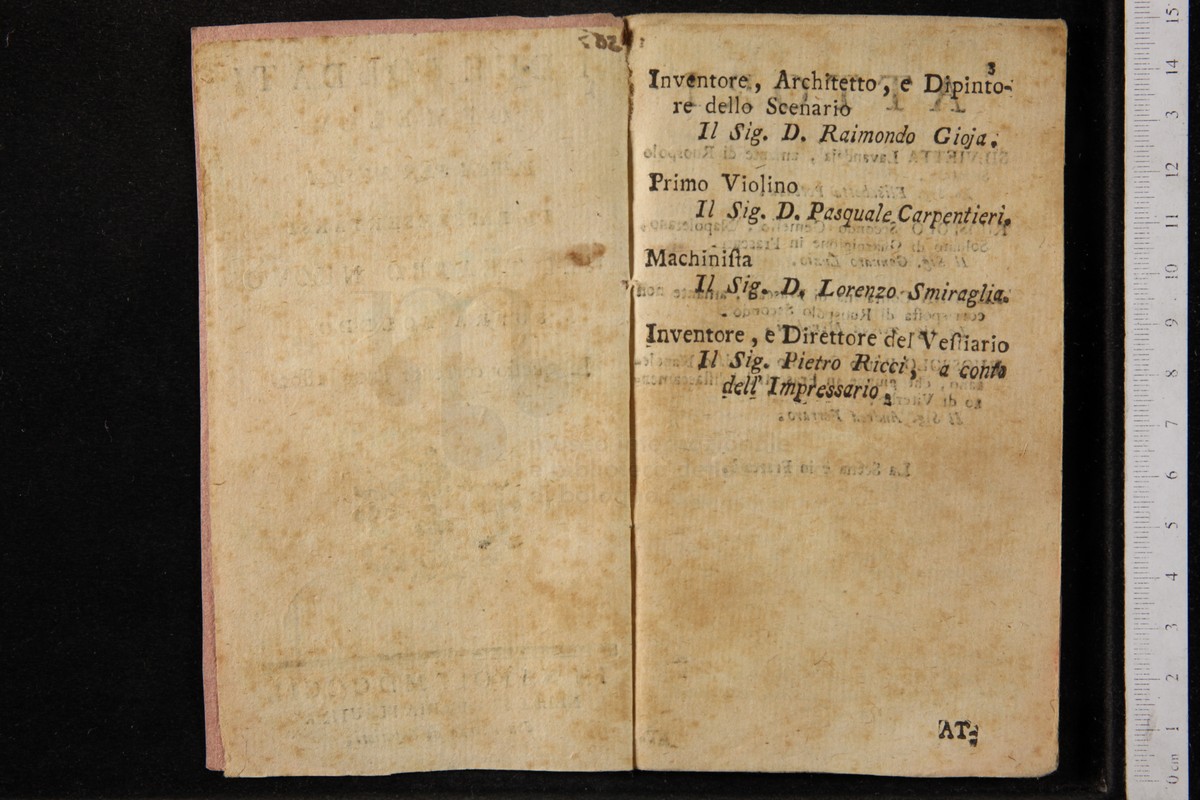 3
Inventore, Architetto, e Dipinto-
re dello Scenario
Il Sig. D. Raimondo Gioja.
Primo Violino
Il Sig. D. Pasquale Carpentieri.
Machiniſta
Il Sig. D. Lorenzo Smiraglia.
Inventore, e Direttore del Veſtiario
Il Sig. Pietro Ricci, a conto
dell' Impressario.
AT-
15
14
13
12
11
10
9
8
7
6
5
4
3
2
1
0 cm